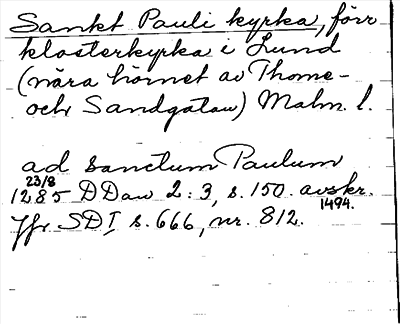 Sankt Pauli kyrka, förr
klosterkyrka i Lund
(nära hörnet av Thome-
och Sandgatan) Malm. l.
ad sanctum Paulum
23/8
1285 DDan 2:3, s. 150. avskr.
1494.
Jfr SD I s. 666, nr. 812.